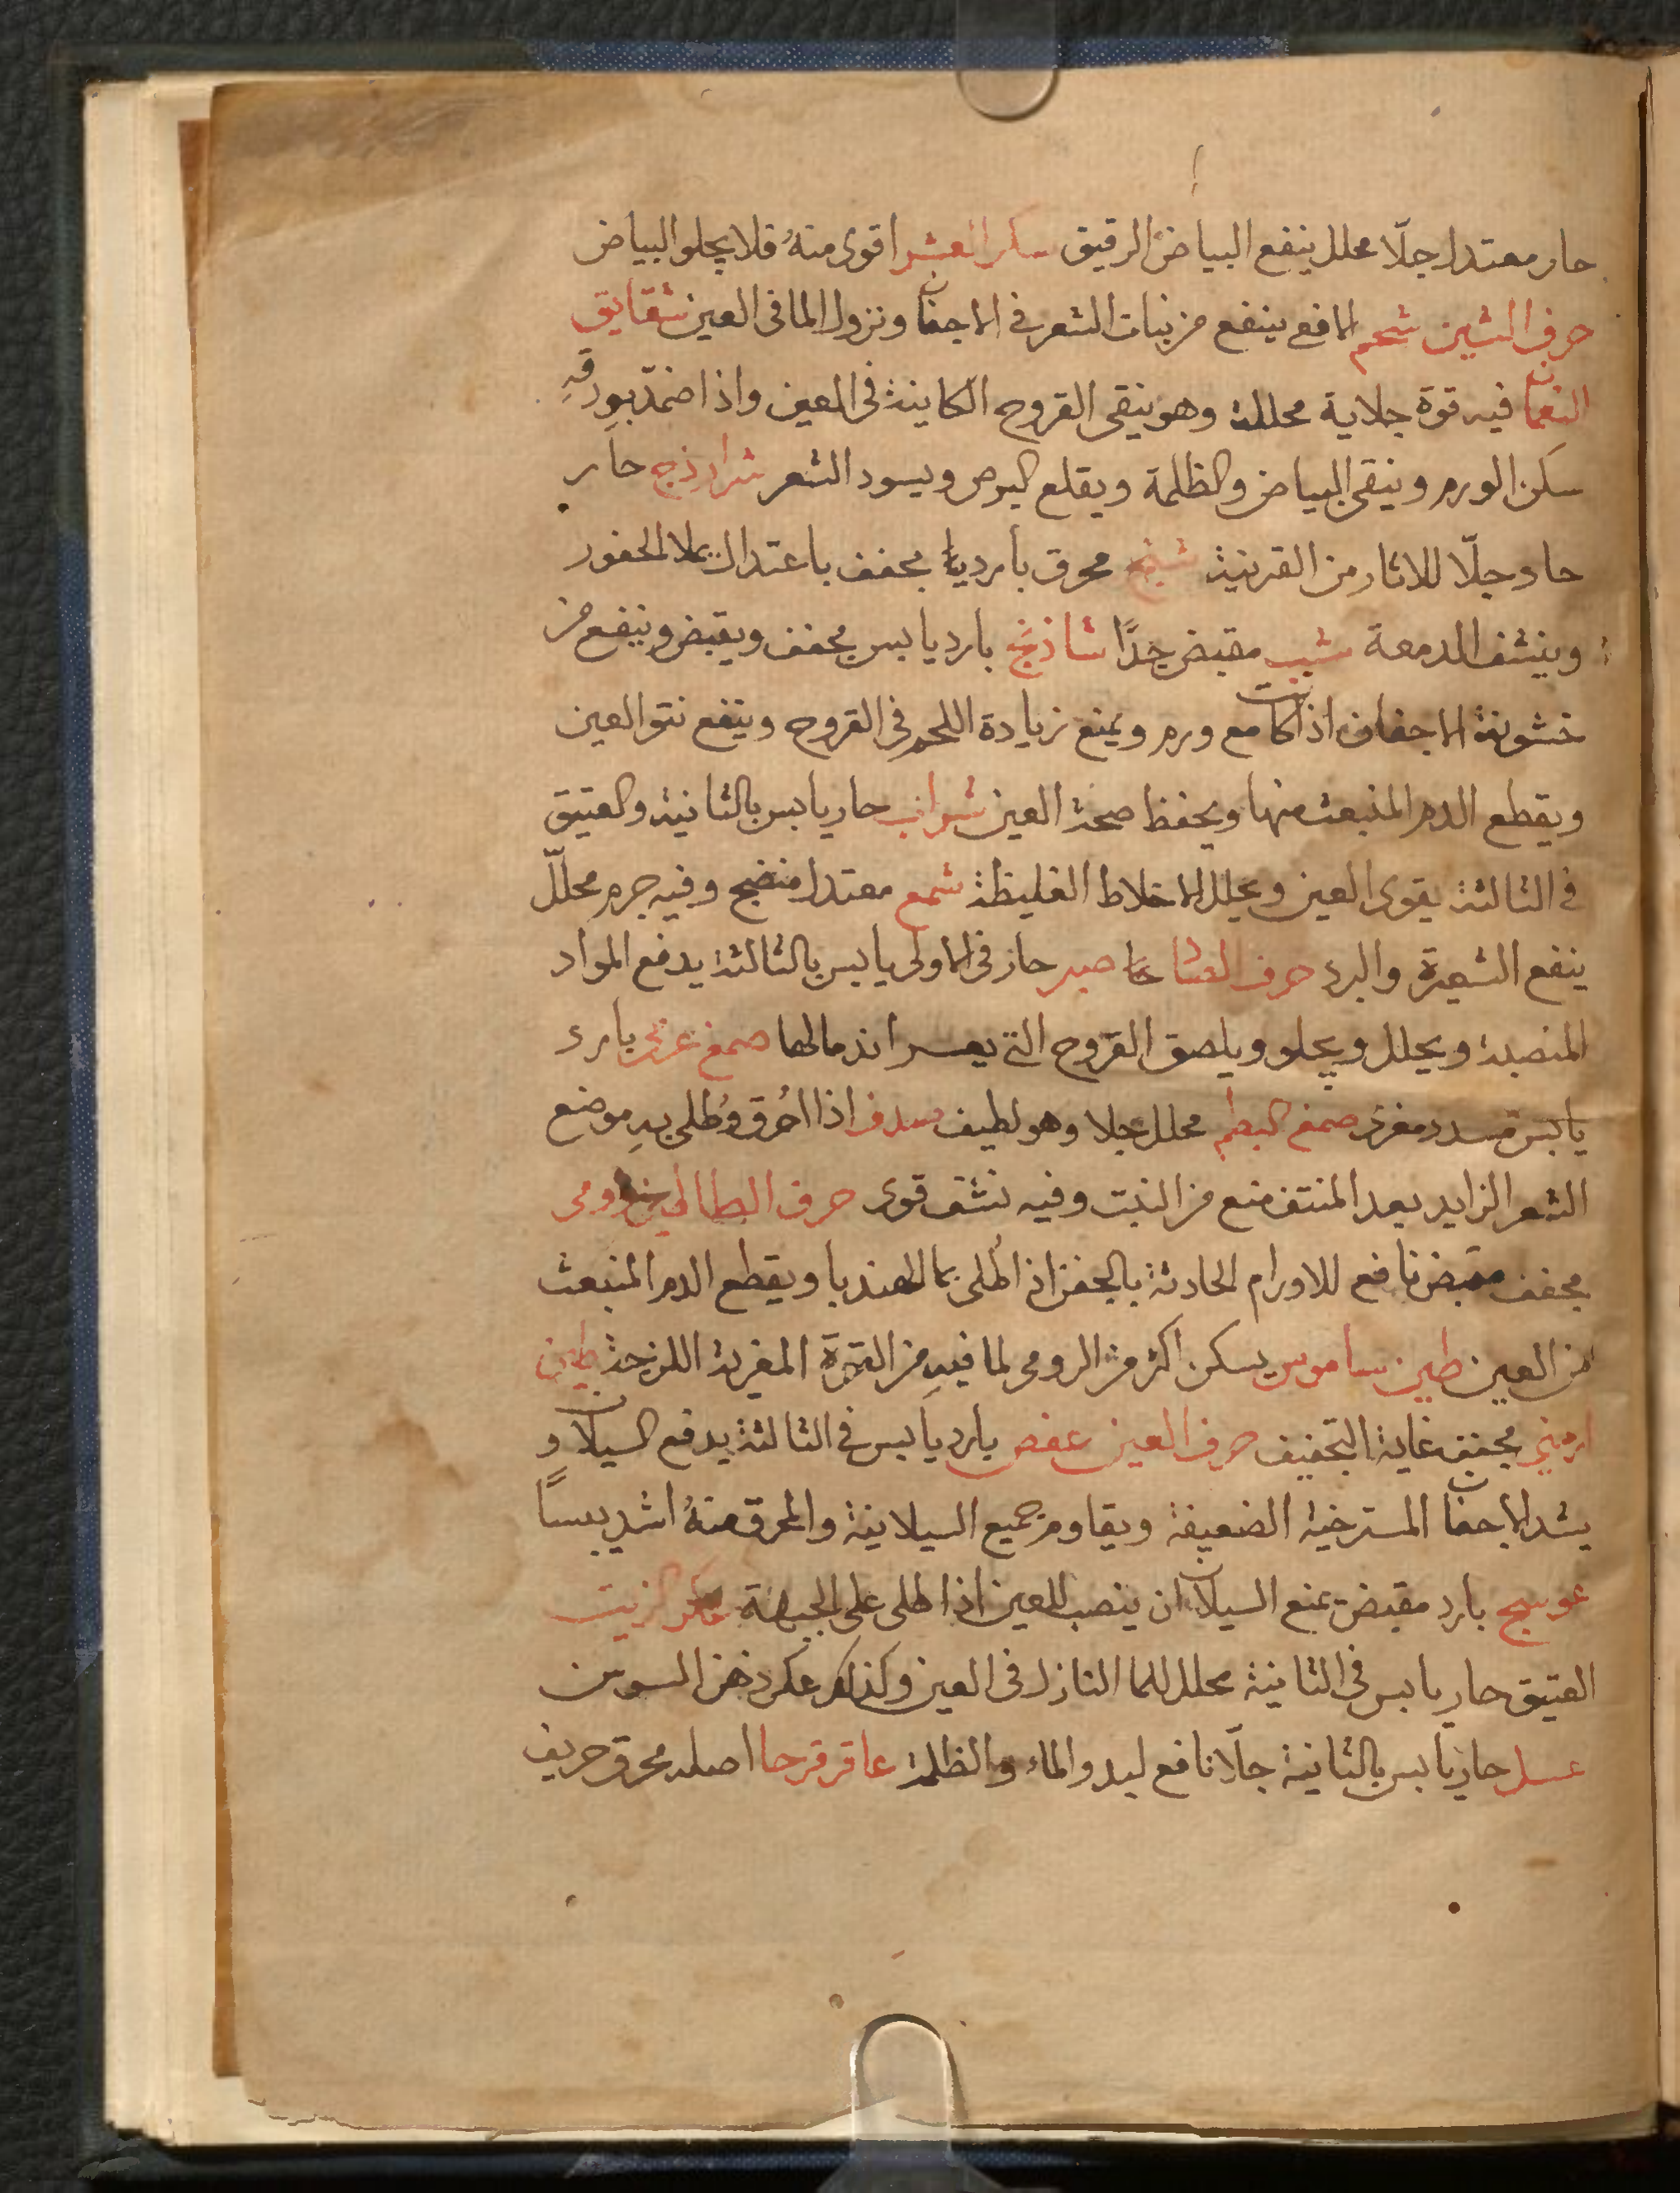 حار معتدل جلّا محلل ينفع البياض الرقيق سكر العشر اقوى منهُ قلا يجلو البياض
حرف الشين شحم الافع ينفع من نبات الشعر في الاجفان ونزول الما في العين شقايق
النعمان فيه قوة جلاية محللة وهو ينقى القروح الكاينة في العين واذا ضمد بورقهِ
سكن الورم وينقى البياض والظلمة ويقلع البرص ويسود الشعر شرارنج حار
حاد وجلّا للاثار من القرنية شنج محرق بارد يابس مجفف باعتدال يملا الحفور
وينشف الدمعة شب مقبض جدًا شاذنج بارد يابس مجفف ويقبض وينفع من
خشونة الاجفان اذا كانت مع ورم ويمنع زيادة اللحم في القروح وينفع نتو العين
ويقطع الدم المنبعث منها ويحفظ صحة العين شراب حار يابس بالثانية والعتيق
في الثالثة يقوى العين ويحلل الاخلاط الغليظة شمع معتدل منضج وفيه جرم محللّ
ينفع الشعيرة والبرد حرف صبر حار في الاولى يابس بالثالثة يدفع المواد
المنصبة ويحلل ويجلو ويلصق القروح التي يعسر اندمالها صمغ عربي بارد
يابس مسدد مغرى صمغ البطم محلل جلا وهو لطيف صدف اذا احُرق وطُلى بهِ موضع
الشعر الزايد بعد المنتف منع من النبت وفيه نشف قوى حرف الطا رومى
مجفف مقبض نافع للاورام الحادثة بالجفن اذا طُلى بما الهندبا ويقطع الدم المنبعث
من العين طين ساموس يسكن اكثر من الرومى لما فيهِ من القوة المغرية اللزجة طين
ارمني مجفف غاية التجفيف حرف العين عفص بارد يابس في الثالثة يدفع السيلان و
يشد الاجفان المسترخية الضعيفة ويقاوم جميع السيلانية والمحرق منهُ اشد يبسًا
عوسج بارد مقبض يمنع السيلان ان ينصب للعين اذا طلى على الجبهة عكر الزيت
العتيق حار يابس في الثانية محلل للما النازل في العين وكذلك عكر دهن السوسن
عسل حار يابس بالثانية جلّا نافع لبدو الماء والظلمة عاقرقرحا اصله محرق حريف